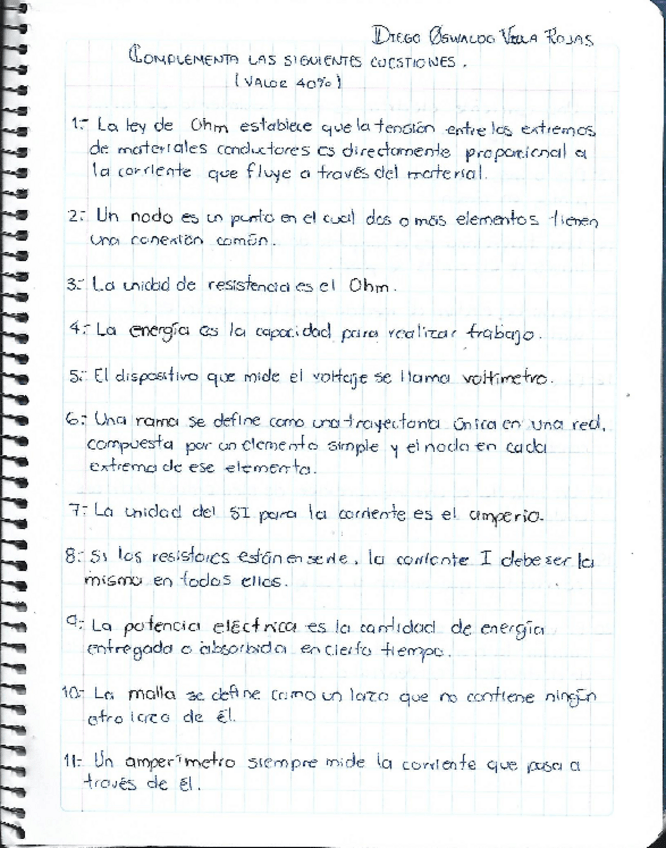 DIEGO OSWALDO VELA ROJAS
COMPLEMENTA LAS SIGUIENTES CUESTIONES.
(VALOR 40%)
1.- La ley de Ohm establece que la tensión entre los extremos
de materiales conductores es directamente proporcional a
la corriente que fluye a través del material.
2.- Un nodo es un punto en el cual dos o más elementos tienen
una conexión común.
3.- La unidad de resistencia es el Ohm.
4.- La energía es la capacidad para realizar trabajo.
5.- El dispositivo que mide el voltaje se llama voltimetro.
6.- Una rama se define como una trayectoria única en una red,
compuesta por un elemento simple y el nodo en cada
extremo de ese elemento.
7.- La unidad del SI para la corriente es el amperio.
8.- Si los resistores están en serie, la corriente I debe ser la
mismo en todos ellos.
9.- La potencia eléctrica es la cantidad de energía
entregada o absorbida en cierto tiempo.
10.- La malla se define como un lazo que no contiene ningún
otro lazo de él.
11.- Un amperímetro siempre mide la corriente que pasa a
través de él.